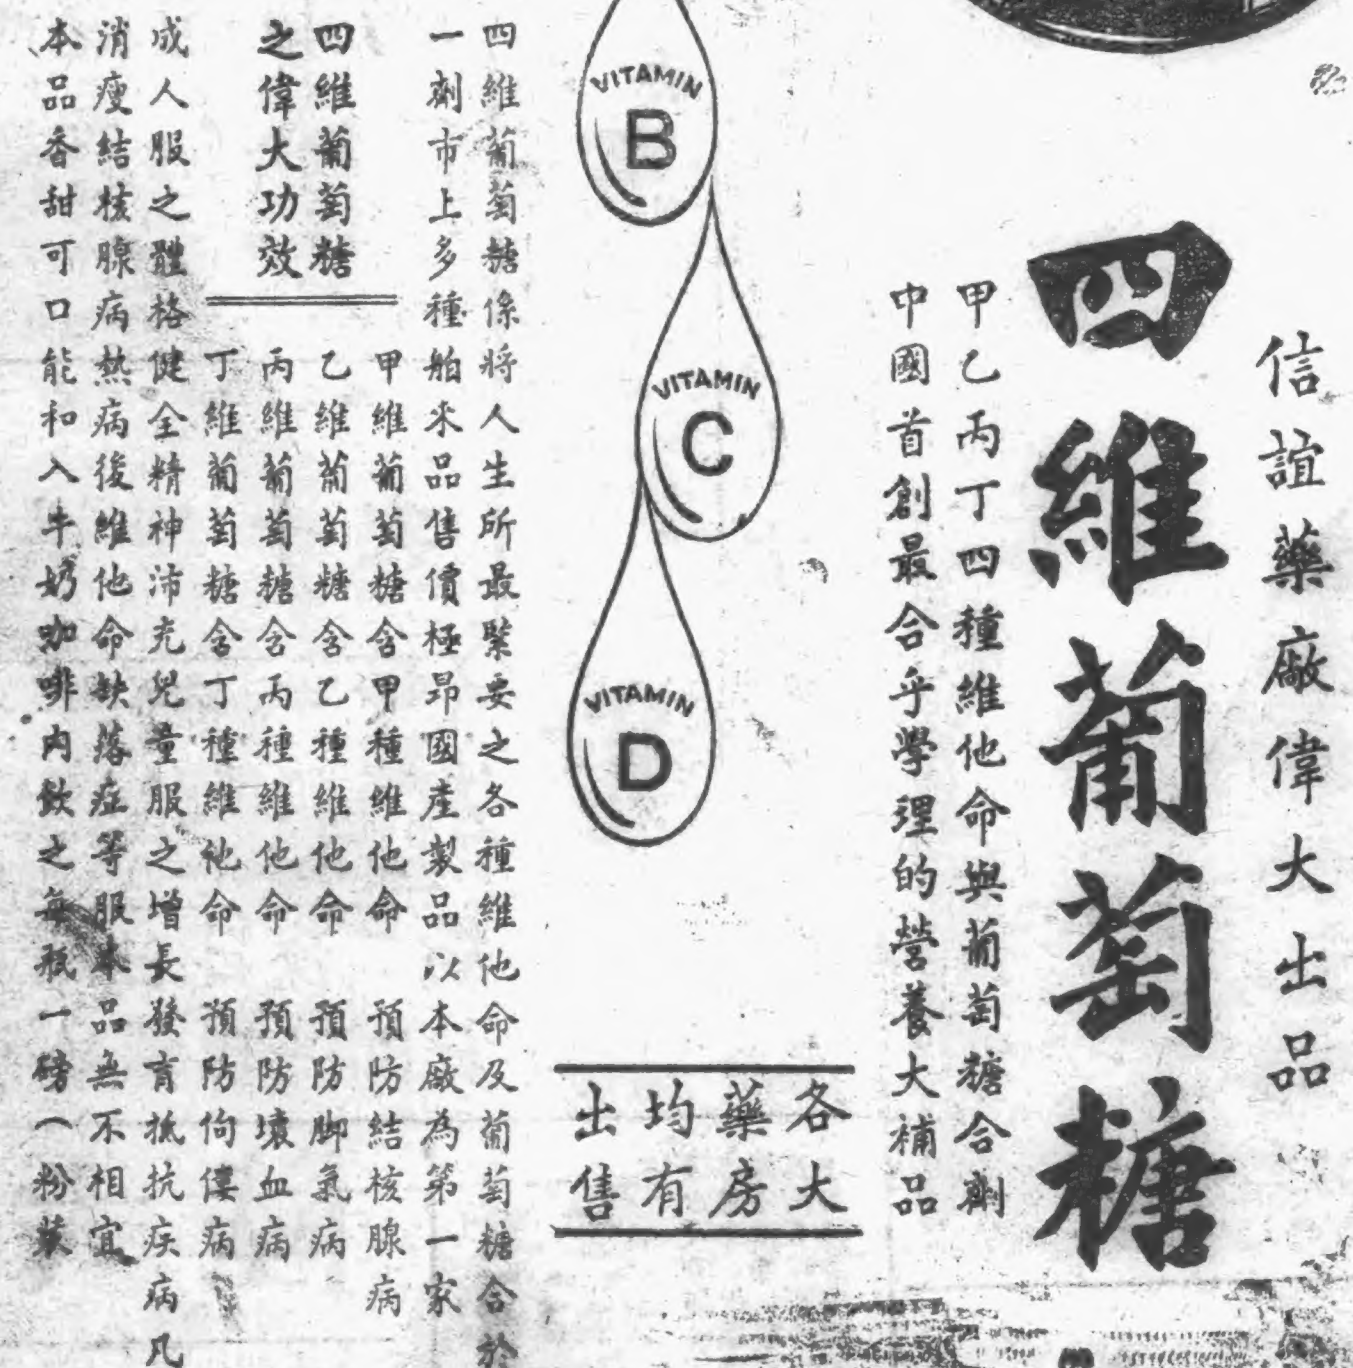 信誼藥廠偉大出品
四維葡萄糖
甲乙丙丁四種維他命與葡萄糖合劑
中國首創最合乎學理的營養大補品
各大
藥房
均有
出售
VITAMIN
B
VITAMIN
C
VITAMIN
D
四維葡萄糖係將人生所最緊要之各種維他命及葡萄糖合於
一劑市上多種舶來品售價極昂國產製品以本廠為第一家
四維葡萄糖
之偉大功效
甲維葡萄糖含甲種維他命 預防結核腺病
乙維葡萄糖含乙種維他命 預防腳氣病
丙維葡萄糖含丙種維他命 預防壞血病
丁維葡萄糖含丁種維他命 預防佝僂病
成人服之體格健全精神沛充兒童服之增長發育抵抗疾病凡
消瘦結核腺病熱病後維他命缺落症等服本品無不相宜
本品香甜可口能和入牛奶咖啡內飲之每瓶一磅(粉裝